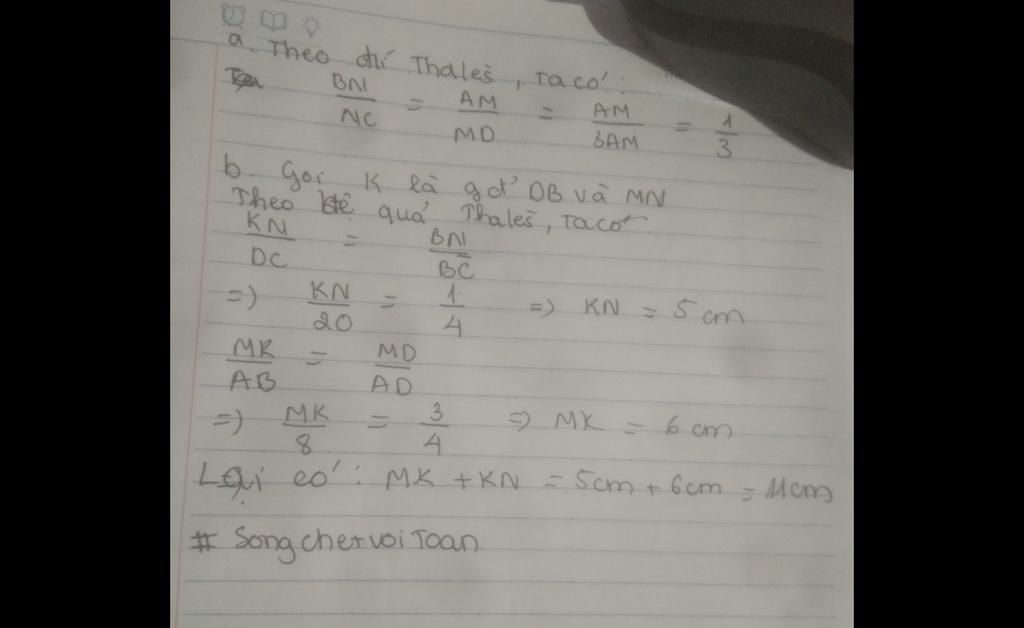 a. Theo đlí Thalès, ta có:
BN/NC = AM/MD = AM/3AM = 1/3
b. Gọi K là gđ' DB và MN
Theo hệ quả Thalès, ta có
KN/DC = BN/BC
=> KN/20 = 1/4 => KN = 5cm
MK/AB = MD/AD
=> MK/8 = 3/4 => MK = 6cm
Lại có: MK + KN = 5cm + 6cm = 11cm
# SongchetvoiToan